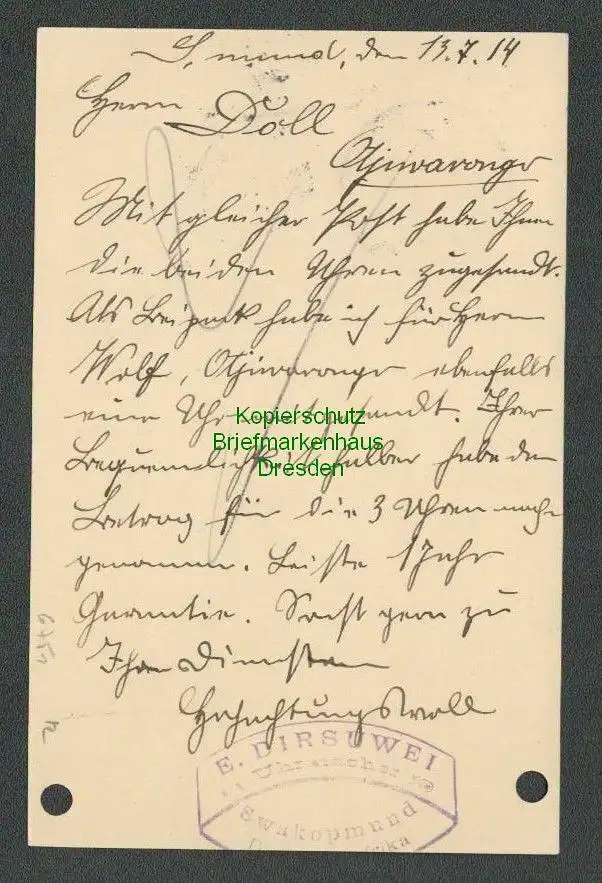 S. mund, den 13.7.14
Herrn
Doll
Otjiwarongo
Mit gleicher Post habe Ihnen
die beiden Uhren zugesandt.
Als Beipack habe ich für Herrn
Wolf, Otjiwarongo ebenfalls
eine Uhr mitgesandt. Ihrer
Kopierschutz
Briefmarkenhaus
Dresden
Bequemlichkeit halber habe den
Betrag für die 3 Uhren nach-
genommen. Leiste 1 Jahr
Garantie. Sonst gern zu
Ihren Diensten
Hochachtungsvoll
E. DIRSUWEI
Uhrmacher
Swakopmund
6754